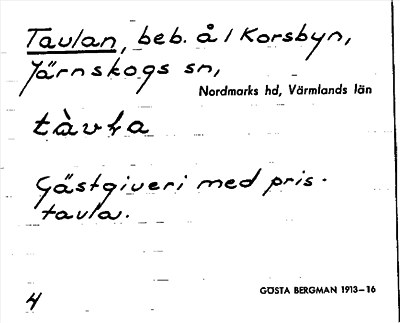 Tavlan, beb. å / Korsbyn,
Järnskogs sn,
Nordmarks hd, Värmlands län
Gästgiveri med pris-
tavla.
4
GÖSTA BERGMAN 1913–16